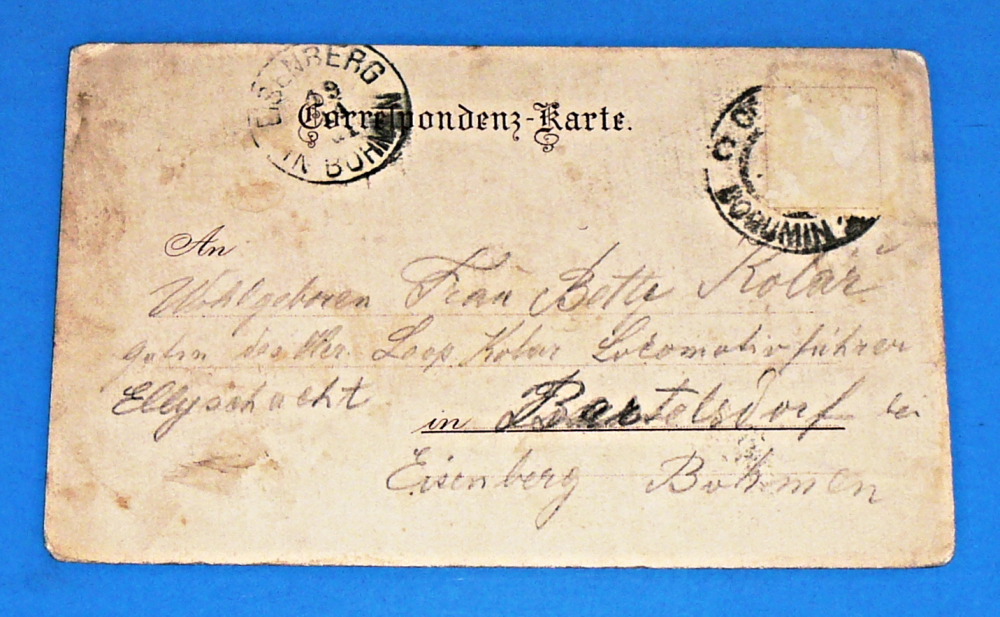 EISENBERG
IN BÖHM
9
Correspondenz-Karte.
NOWUMIN
An
Wohlgeboren Frau Betty Kolář
des Leop. Kolar Lokomotivführer
Ellyschacht
in Bartelsdorf bei
Eisenberg Böhmen